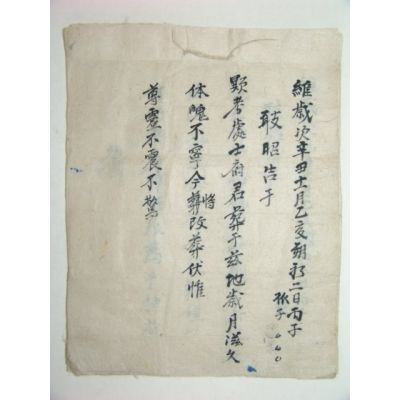 維歲次辛丑十一月乙亥朔初二日丙子
孤子
敢昭告于
顯考處士府君葬于玆地歲月滋久
体魄不寧今將改葬伏惟
尊靈不震不驚